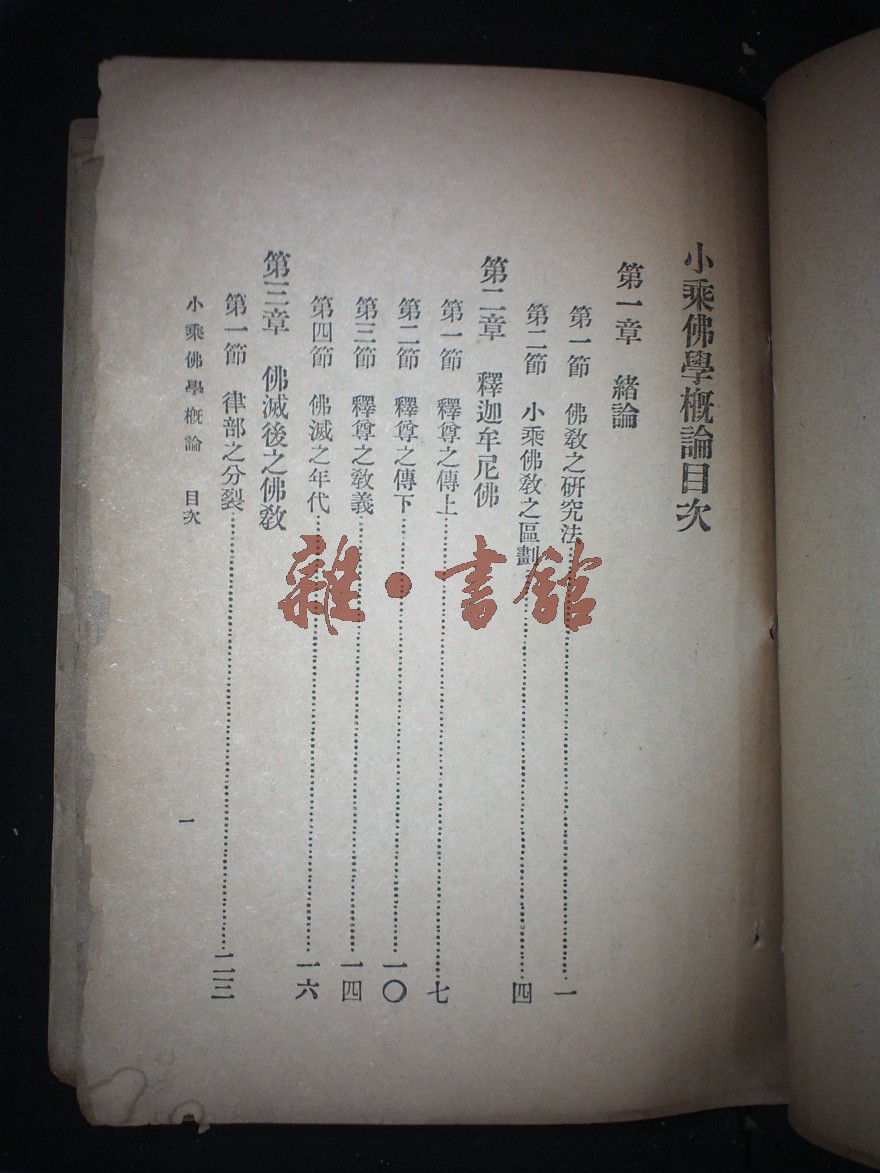 小乘佛學概論目次
第一章 緒論
第一節 佛教之研究法……一
第二節 小乘佛教之區劃……四
第二章 釋迦牟尼佛
第一節 釋尊之傳上……七
第二節 釋尊之傳下……一〇
第三節 釋尊之教義……一四
第四節 佛滅之年代……一六
第三章 佛滅後之佛教
第一節 律部之分裂……二三
小乘佛學概論 目次
一
雜·書館